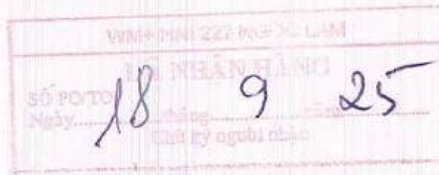 WM+ HNI 227 NG
ĐÃ NHẬN HÀNG
SỐ PO/TO
Ngày 18 tháng 9 năm 25
Chữ ký người nhận